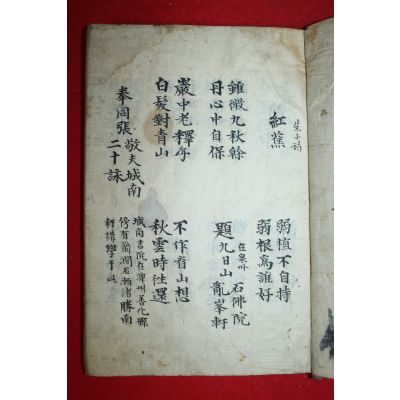 朱子詩
紅蕉
弱植不自持
弱根爲誰好
雖微九秋榦
丹心中自保
題九日山石佛院亂峯軒
在泉州
巖中老釋子
白髮對青山
不作看山想
秋雲時往還
奉同張敬夫城南二十詠
城南書院在潭州善化縣
傍有蘭澗石瀨諸勝南
軒構學于此